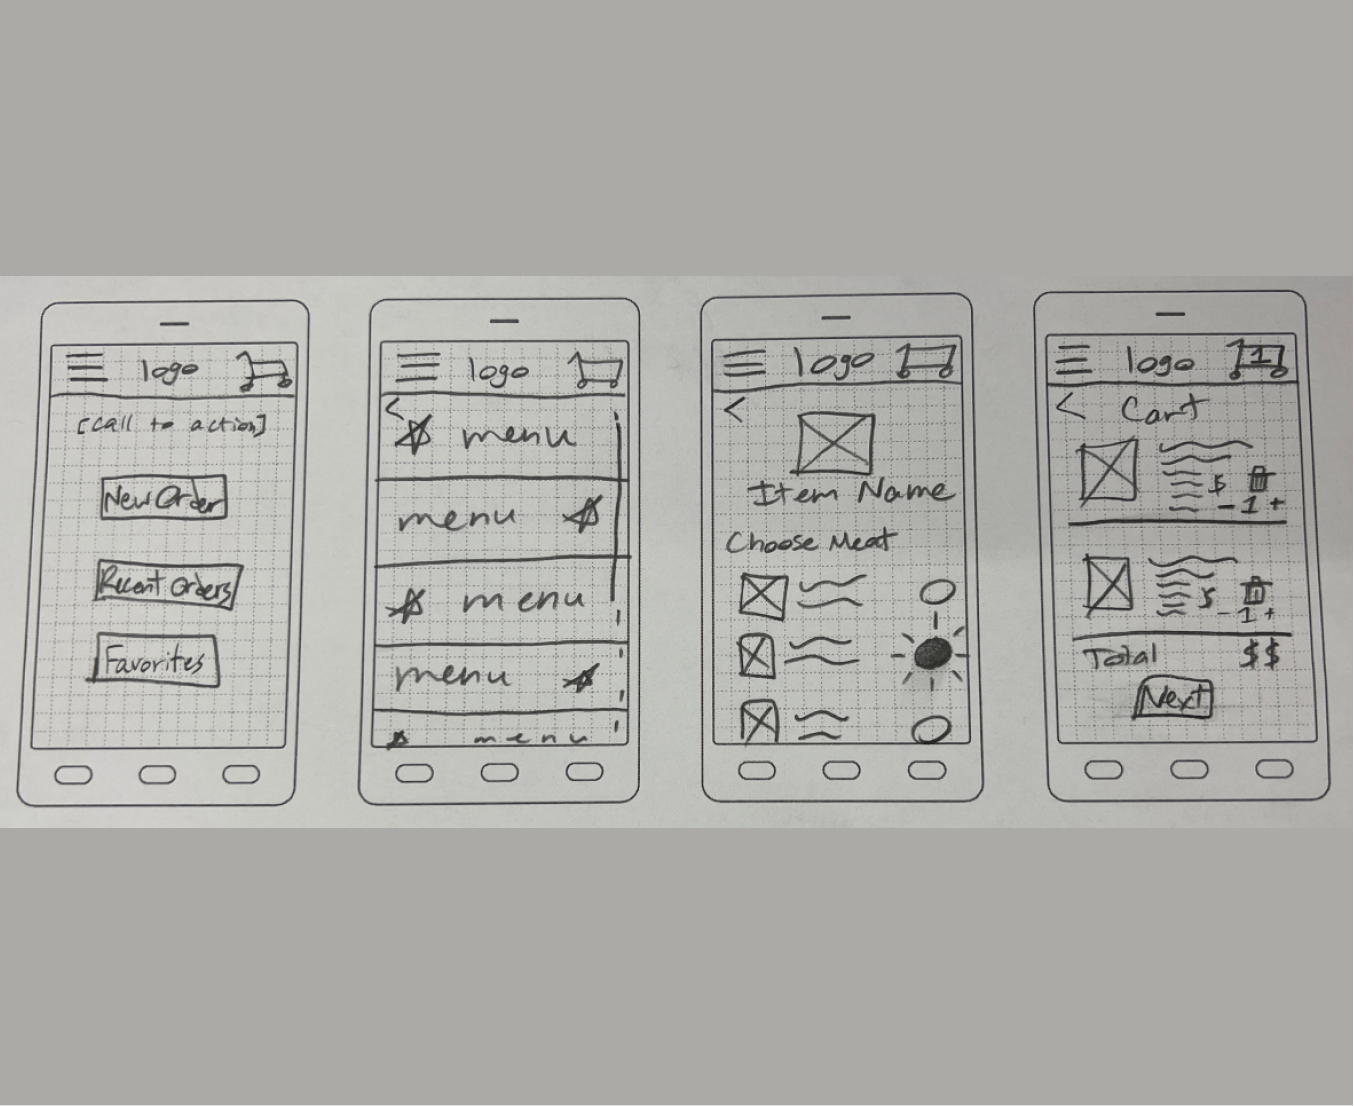 logo
[call to action]
New Order
Recent Orders
Favorites
logo
menu
menu
menu
menu
menu
logo
Item Name
Choose Meat
logo 1
Cart
$
- 1 +
$
- 1 +
Total $$
Next